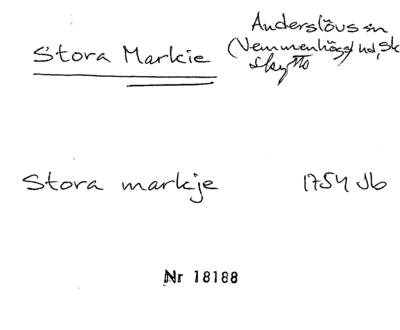 Stora Markie
Anderslövs sn
(Vemmenhögs) hd, Sk
Skytts
Stora markje 1754 Jb
Nr 18188